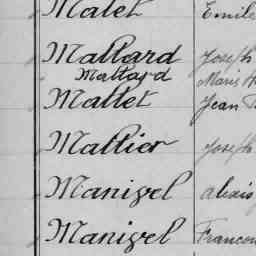 Malet Emile
Mallard Joseph
Mallard Marie
Mallet Jean
Mallier Joseph
Manivel alexis
Manivel Francois